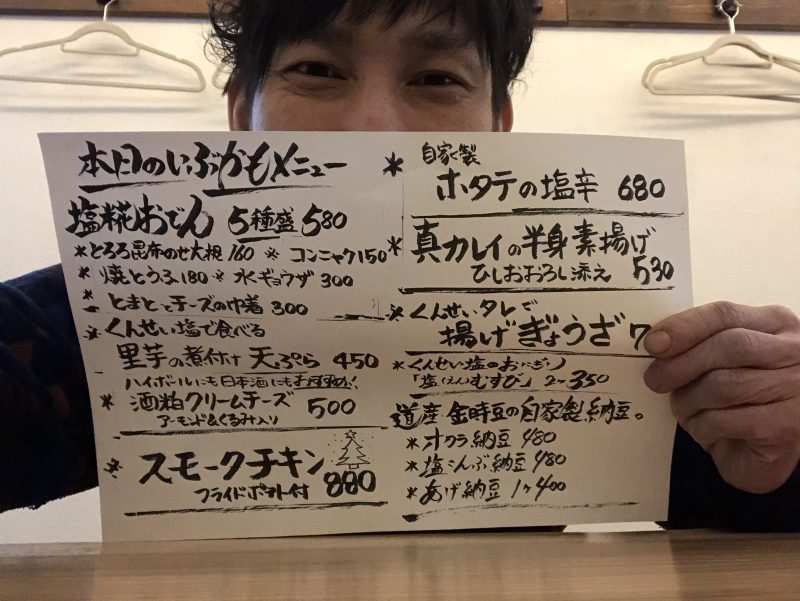 本日のいぶかもメニュー
塩糀おでん 5種盛 580
*とろろ昆布のせ大根160 * コンニャク150
*焼とうふ180 * 水ギョウザ 300
* とまととチーズの巾着 300
* くんせい塩で食べる
里芋の煮付け 天ぷら 450
ハイボールにも日本酒にもおすすめ!!
* 酒粕クリームチーズ 500
アーモンド&くるみ入り
* スモークチキン 880
フライドポテト付
* 自家製
ホタテの塩辛 680
* 真カレイの半身素揚げ
ひしおおろし添え 530
* くんせいタレで
揚げぎょうざ 7
*くんせい塩のおにぎり
「塩むすび」 2ヶ350
道産 金時豆の自家製納豆。
* オクラ納豆 480
* 塩こんぶ納豆 480
* あげ納豆 1ヶ400